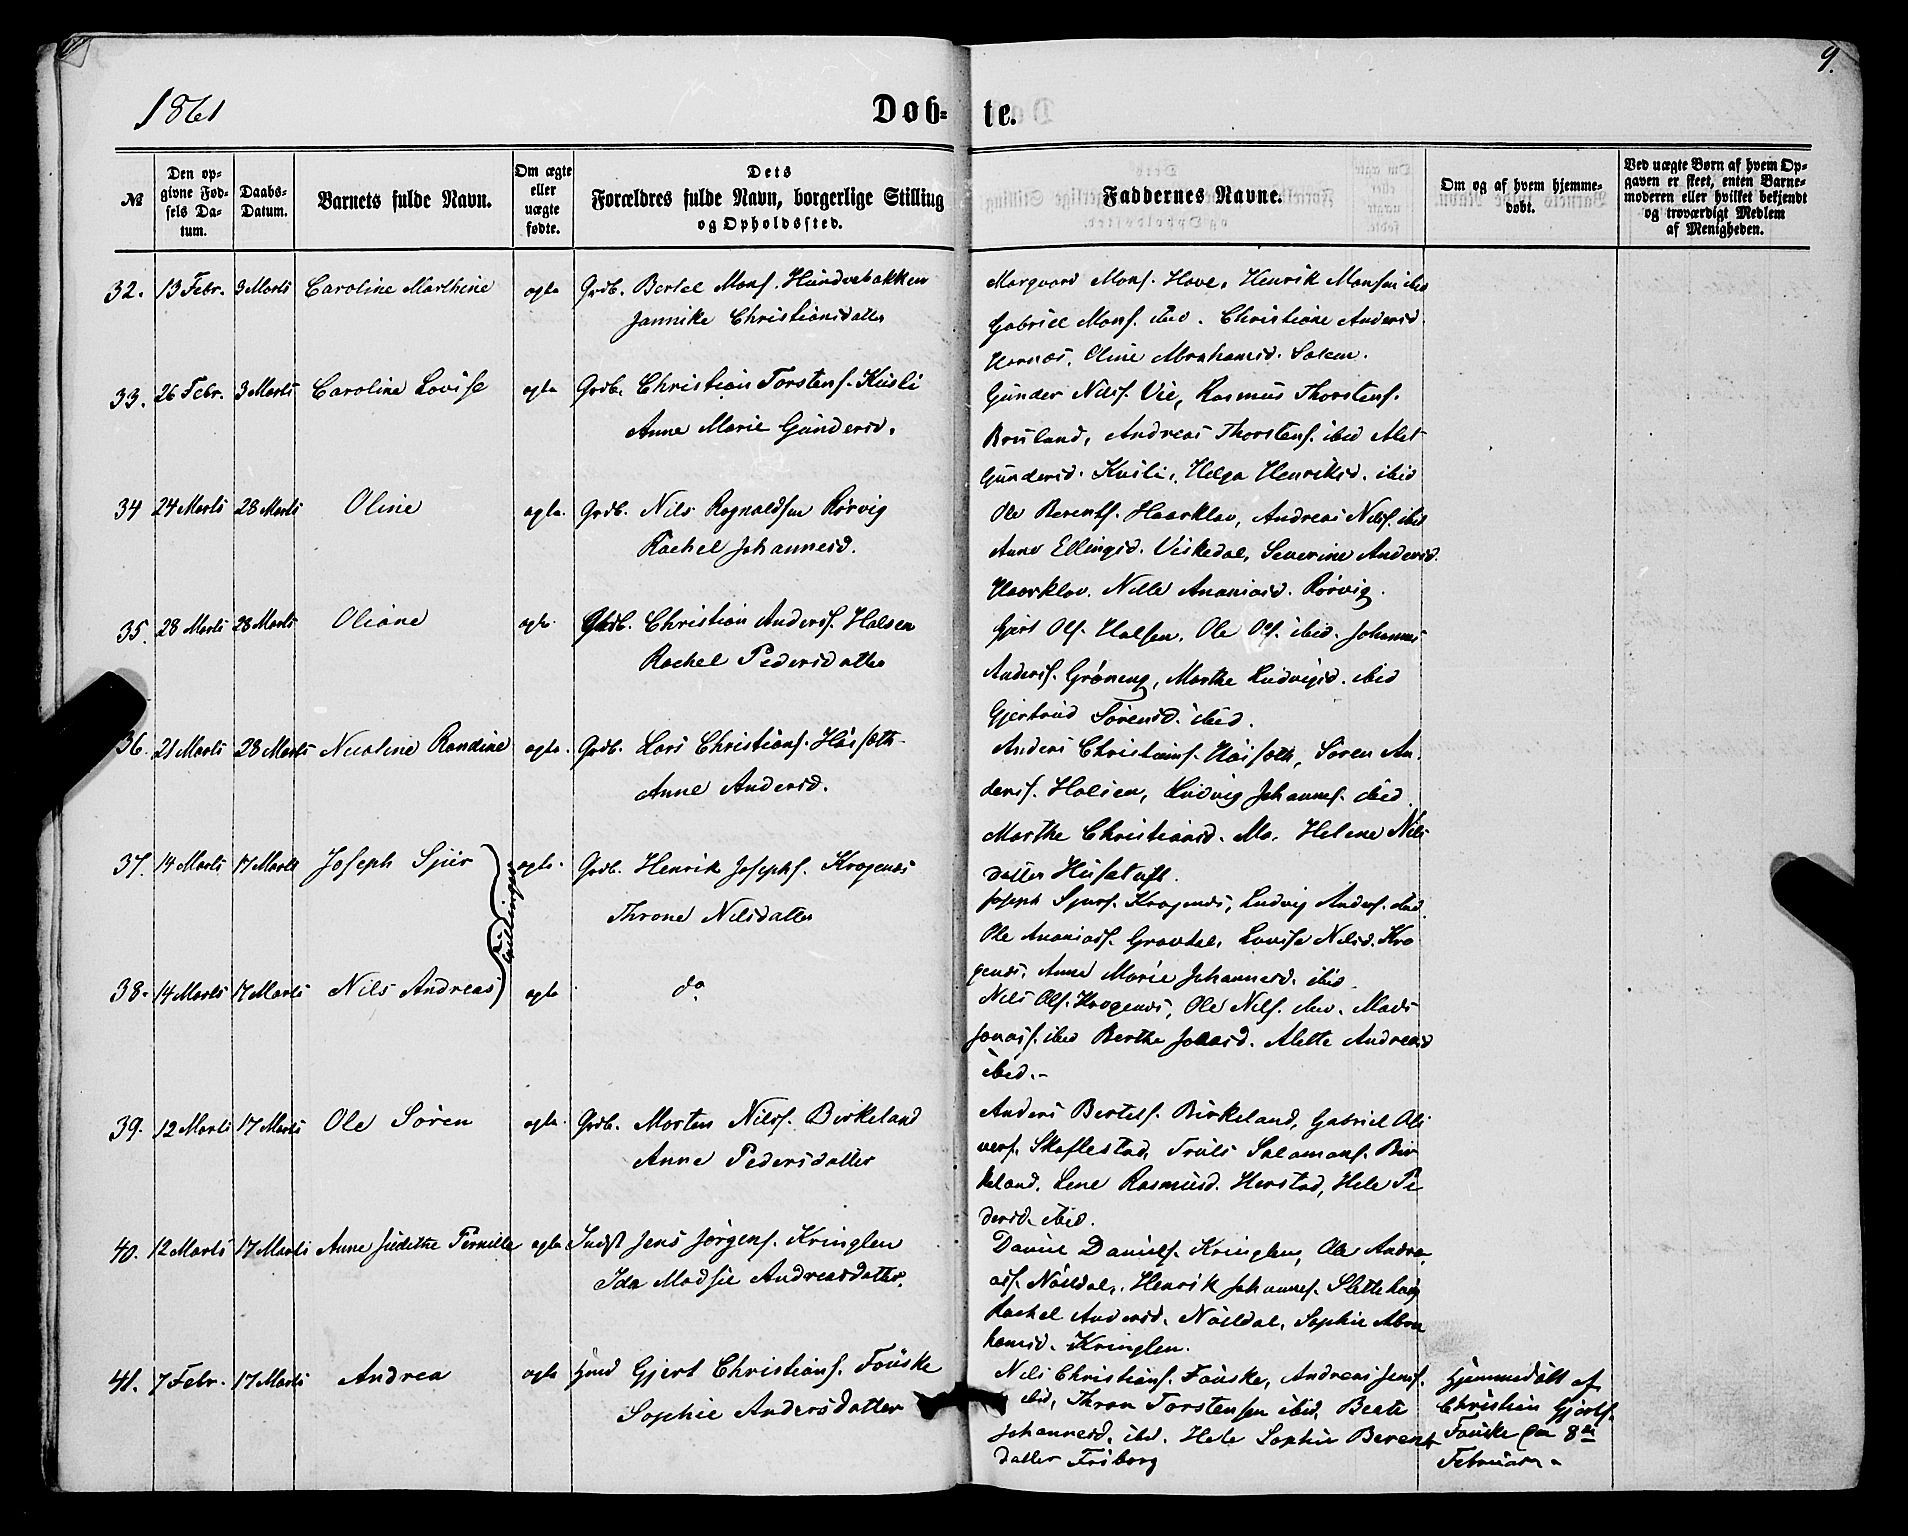 1861
Døb=
te.
9.
№
Den op-
givne Fød-
sels Da-
tum.
Daabs-
Datum.
Barnets fulde Navn.
Om ægte
eller
uægte
fødte.
Dets
Forældres fulde Navn, borgerlige Stilling
og Opholdssted.
Faddernes Navne.
Om og af hvem hjemme-
døbt.
Ved uægte Børn af hvem Op-
gaven er skeet, enten Barne-
moderen eller hvilket bekjendt
og troværdigt Medlem
af Menigheden.
32. 13 Febr. 3 Marts Caroline Marthine ægte Grdb. Bertel Mons. Hundvebakken
Jannike Christiansdatter
Margvard Mons. Hove, Henrik Monsen ibid
Gabriel Mons. ibid. Christiane Andersd.
Hornæs, Oline Abrahamsd. Solem.
33. 26 Febr. 3 Marts Caroline Lovise ægte Grdb. Christian Torstens. Kusli
Anne Marie Gundersd.
Gunder Nilss. Vie, Rasmus Thorstens.
Bruland, Andreas Thorstens. ibid Alet
Gundersd. Kusli, Helga Henriksd. ibid
34 24 Marts 28 Marts Oline ægte. Grdb. Nils Rognaldsen Rørvig
Rachel Johannesd.
Ole Berents. Haarklov, Andreas Nilss. ibid
Anne Ellingsd. Viskedal, Severine Andersd.
Haarklov. Nille Ananiasd. Rørvig.
35. 28 Marts 28 Marts Oliane ægte. Grdb. Christian Anderss. Halsen
Rachel Pedersdatter
Gjert Ols. Halsen. Ole Ols. ibid. Johannes
Anderss. Grøneng, Marthe Ludvigsd. ibid
Gjertrud Sørensd. ibid.
36. 21 Marts 28 Marts Nicoline Randine ægte. Grdb. Lars Christians. Høisæth
Anne Andersd.
Anders Christians. Høisæth, Søren An-
derss. Halsen, Ludvig Johannes. ibid.
Marthe Christiansd. Mo. Helene Nils
datter Hustuft.
37. 14 Marts 17 Marts Joseph Sjur ægte. Grdb. Henrik Josephs. Krogenæs
Throne Nilsdatter
Tvillinger
Joseph Sjurs. Krogenæs, Ludvig Anders. ibid.
Ole Ananiass. Gravdal, Lovise Nilsd. Kro
genæs, Anne Marie Johannesd. ibid.
38. 14 Marts 17 Marts Nils Andreas ægte do
Nils Ols. Krogenæs, Ole Nils. ibid. Mads
Jonass. ibid Berthe Jonasd. Alette Andreasd
ibid.-
39. 12 Marts 17 Marts Ole Søren ægte. Grdb. Morten Nilss. Birkeland
Anne Pedersdatter
Anders Bertels. Birkeland, Gabriel Oli
vers. Skaflestad, Truls Salamons. Bir
keland. Lene Rasmusd. Herstad, Hele Pe
dersd. ibid.
40. 12 Marts 17 Marts Anne Judithe Pernille ægte Indst Jens Jørgens. Kringlen
Ida Madsie Andreasdatter.
Daniel Daniels. Kringlen, Ole Andre
ass. Nøildal, Henrik Johannes. Slettehaug
Rachel Andersd. Nøildal, Sophie Abra
hamsd. Kringlen.
41. 7 Febr. 17 Marts Andrea ægte Gjert Christians. Fouske
Sophie Andersdatter
Nils Christians. Fouske, Andreas Jens.
ibid, Thron Torstensen ibid, Beate
Johannesd. ibd. Hele Sophie Berent
datter Friborg
Hjemmedøbt af
Christian Gjerts.
Fouske den 8de
Februar.